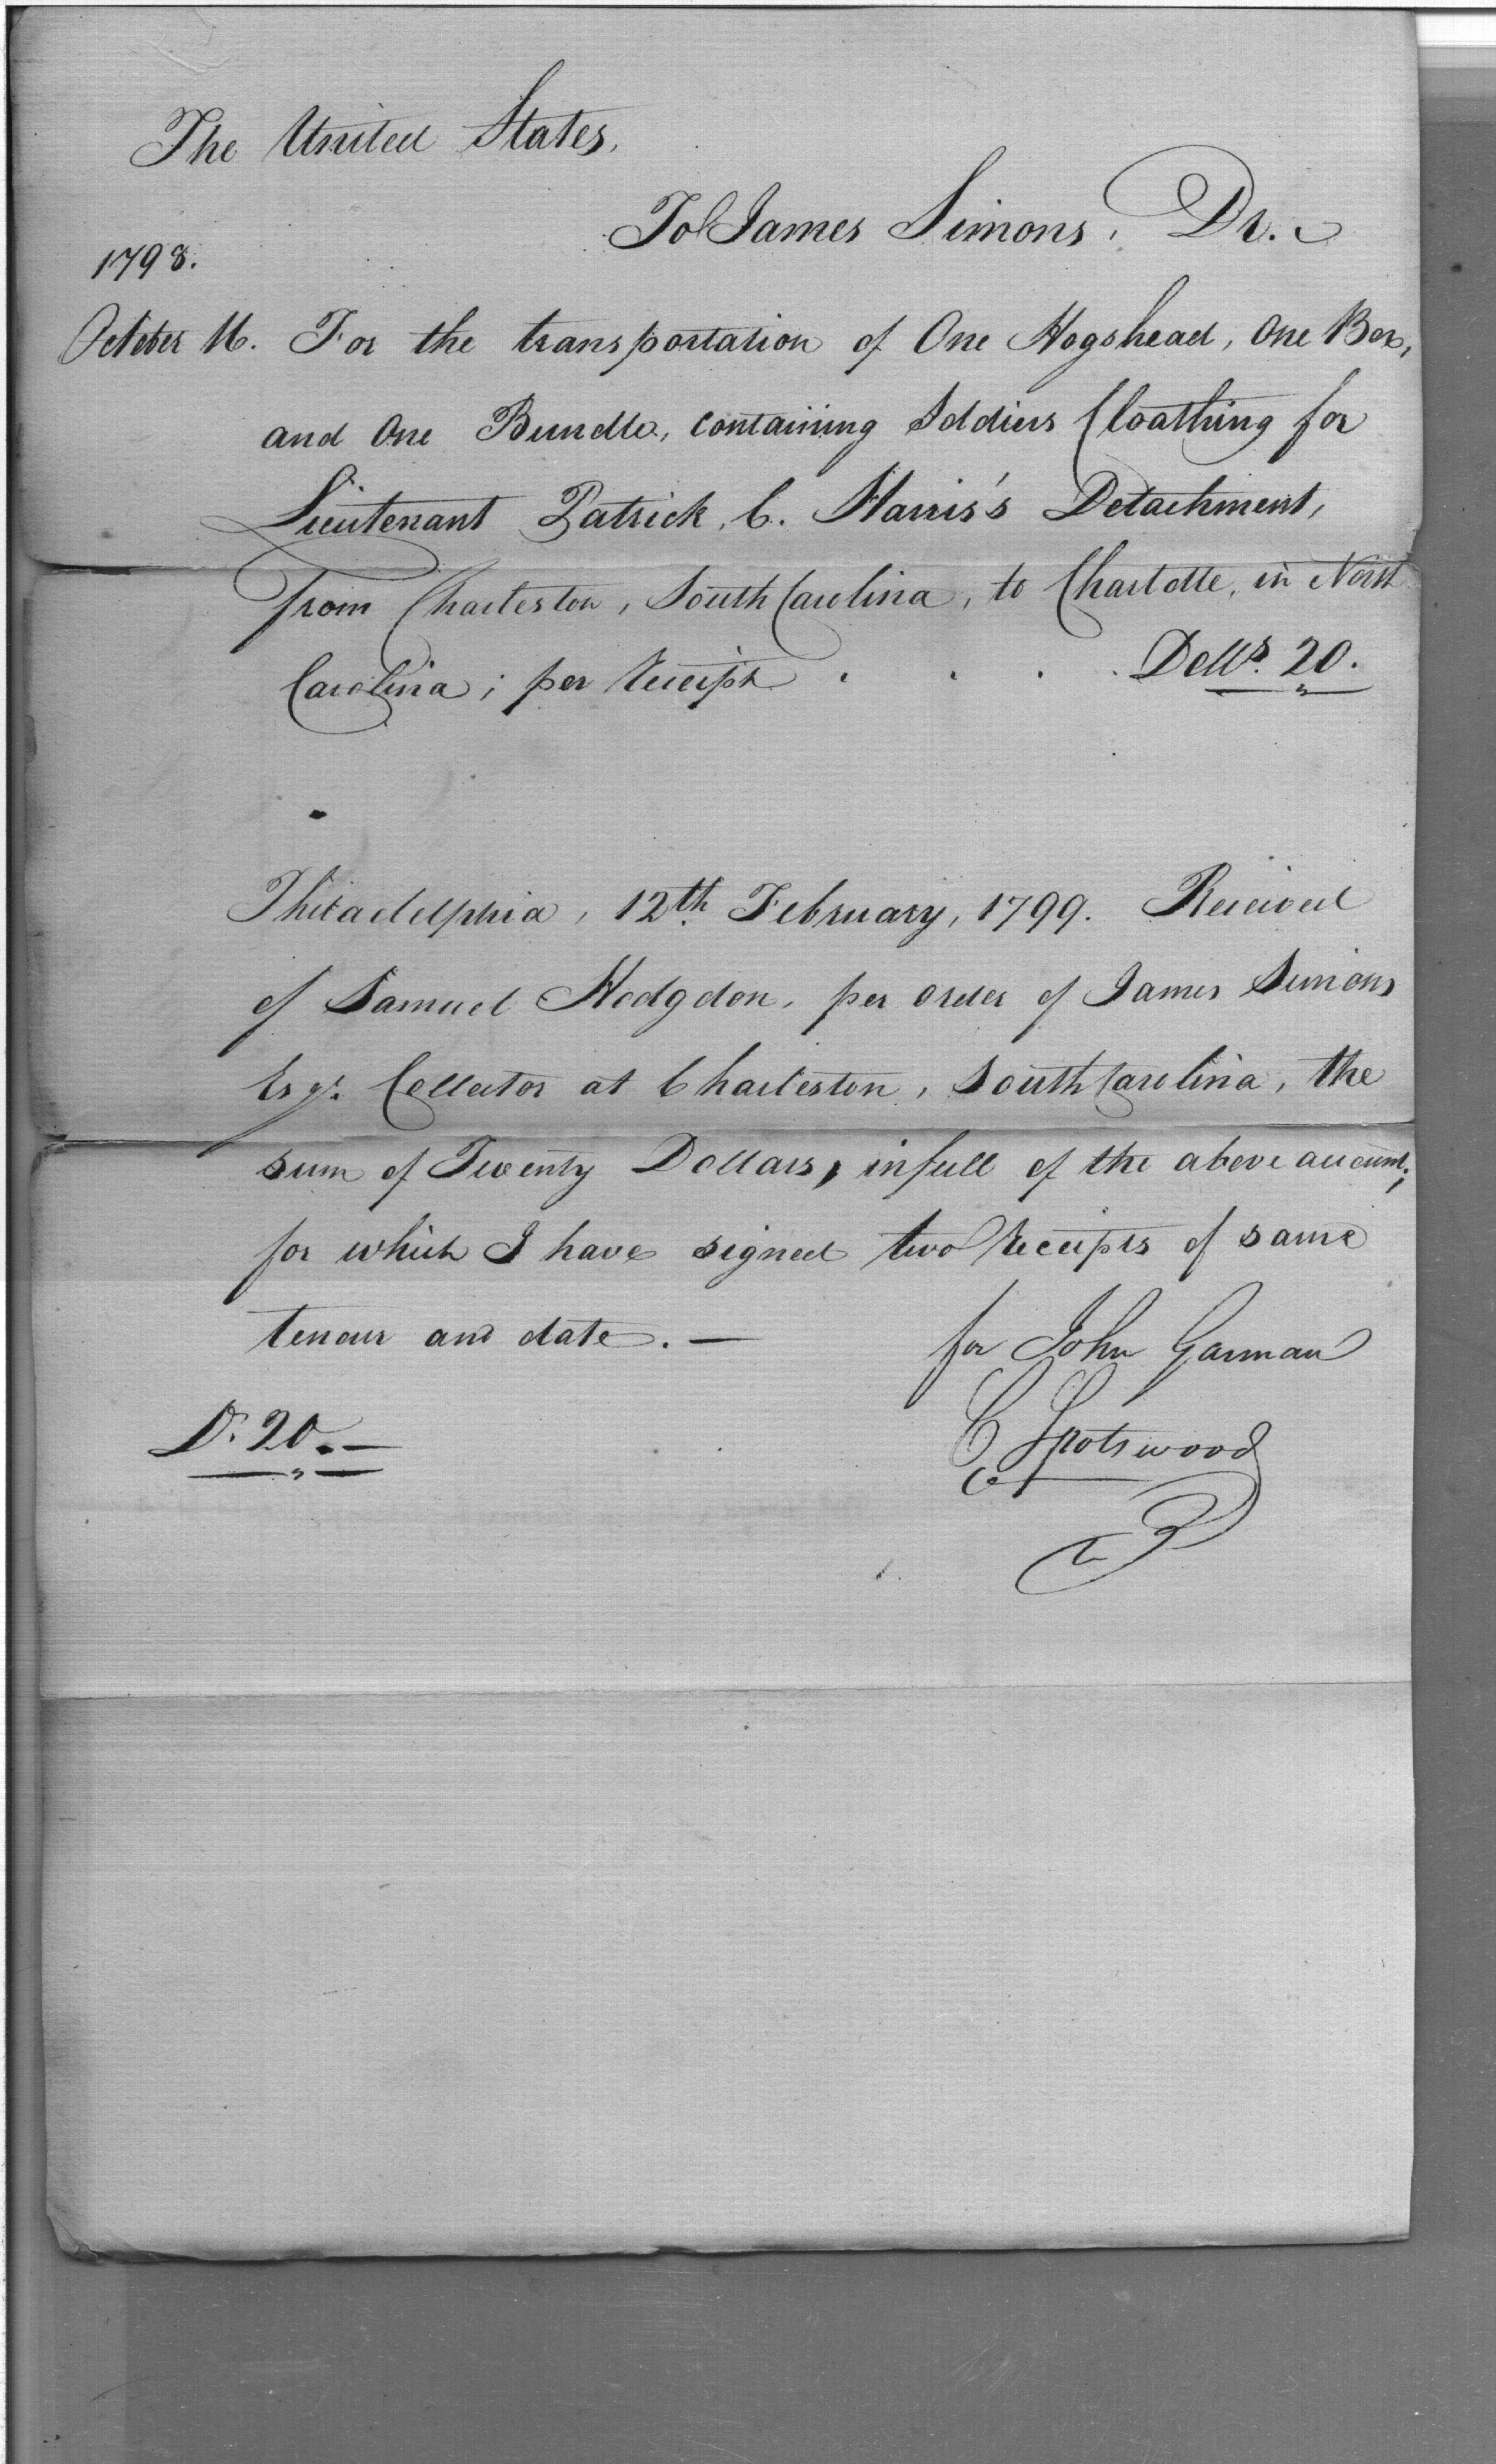 The United States,
To James Simons, Dr.
1798.
October 16. For the transportation of One Hogshead, One Box,
and One Bundle, containing Soldiers Cloathing for
Lieutenant Patrick C. Harris's Detachment,
from Charleston, South Carolina, to Charlotte, in North
Carolina; per Receipt . . . . Dolls. 20.
Philadelphia, 12th February, 1799. Received
of Samuel Hodgdon, per order of James Simons
Esqr. Collector at Charleston, South Carolina, the
sum of Twenty Dollars, in full of the above account;
for which I have signed two Receipts of same
tenour and date. —
for John Garman
D. 20. —
C Spotswood